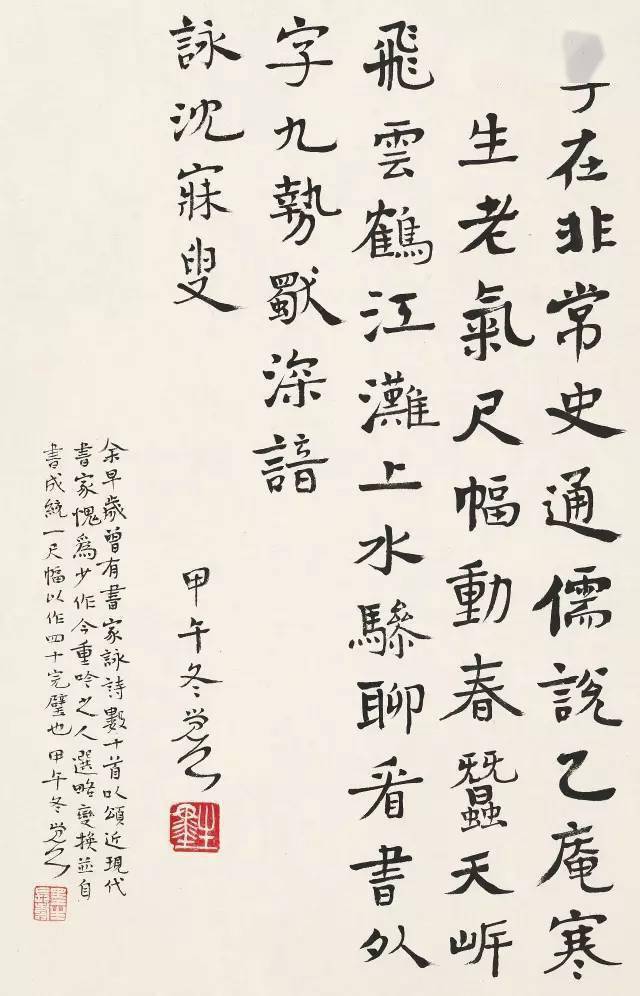 在非常史通儒說乙庵寒
生老氣尺幅動春蠶天岸
飛雲鶴江灘上水驂聊看書外
字九勢獨深諳
詠沈寐叟
甲午冬
余早歲曾有書家詠詩數十首以頌近現代
書家愧爲少作今重吟之人選略變換並自
書成統一尺幅以作四十完璧也甲午冬